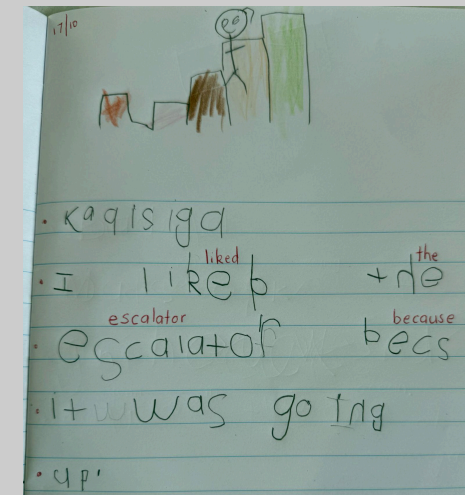 17/10
Kaqisiga
liked the
I likeb the
escalator because
escalator becs
it was going
up.